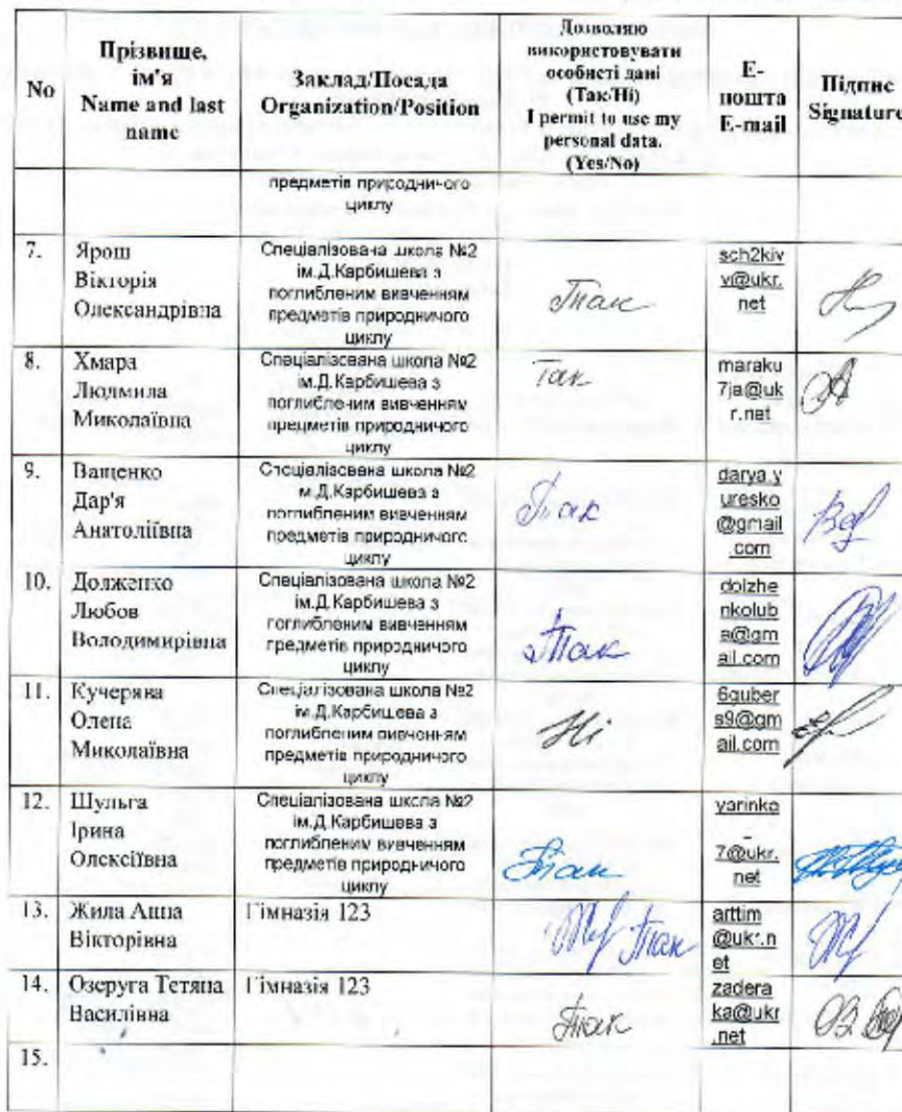 No
Прізвище,
ім'я
Name and last
name
Заклад/Посада
Organization/Position
Дозволяю
використовувати
особисті дані
(Так/Ні)
I permit to use my
personal data.
(Yes/No)
E-
пошта
E-mail
Підпис
Signature
предметів природничого
циклу
7.
Ярош
Вікторія
Олександрівна
Спеціалізована школа №2
ім.Д.Карбишева з
поглибленим вивченням
предметів природничого
циклу
Так
sch2kiv
v@ukr.
net
8.
Хмара
Людмила
Миколаївна
Спеціалізована школа №2
ім.Д.Карбишева з
поглибленим вивченням
предметів природничого
циклу
Так
maraku
7ja@uk
r.net
9.
Ващенко
Дар'я
Анатоліївна
Спеціалізована школа №2
м.Д.Карбишева з
поглибленим вивченням
предметів природничого
циклу
Так
darya.y
uresko
@gmail
.com
10.
Долженко
Любов
Володимирівна
Спеціалізована школа №2
ім.Д.Карбишева з
поглибленим вивченням
предметів природничого
циклу
Так
dolzhe
nkolub
a@gm
ail.com
11.
Кучерява
Олена
Миколаївна
Спеціалізована школа №2
ім.Д.Карбишева з
поглибленим вивченням
предметів природничого
циклу
Ні
6guber
s9@gm
ail.com
12.
Шульга
Ірина
Олексіївна
Спеціалізована школа №2
ім.Д.Карбишева з
поглибленим вивченням
предметів природничого
циклу
Так
yarinka
_
7@ukr.
net
13.
Жила Анна
Вікторівна
Гімназія 123
Так
arttim
@ukr.n
et
14.
Озеруга Тетяна
Василівна
Гімназія 123
Так
zadera
ka@ukr
.net
15.